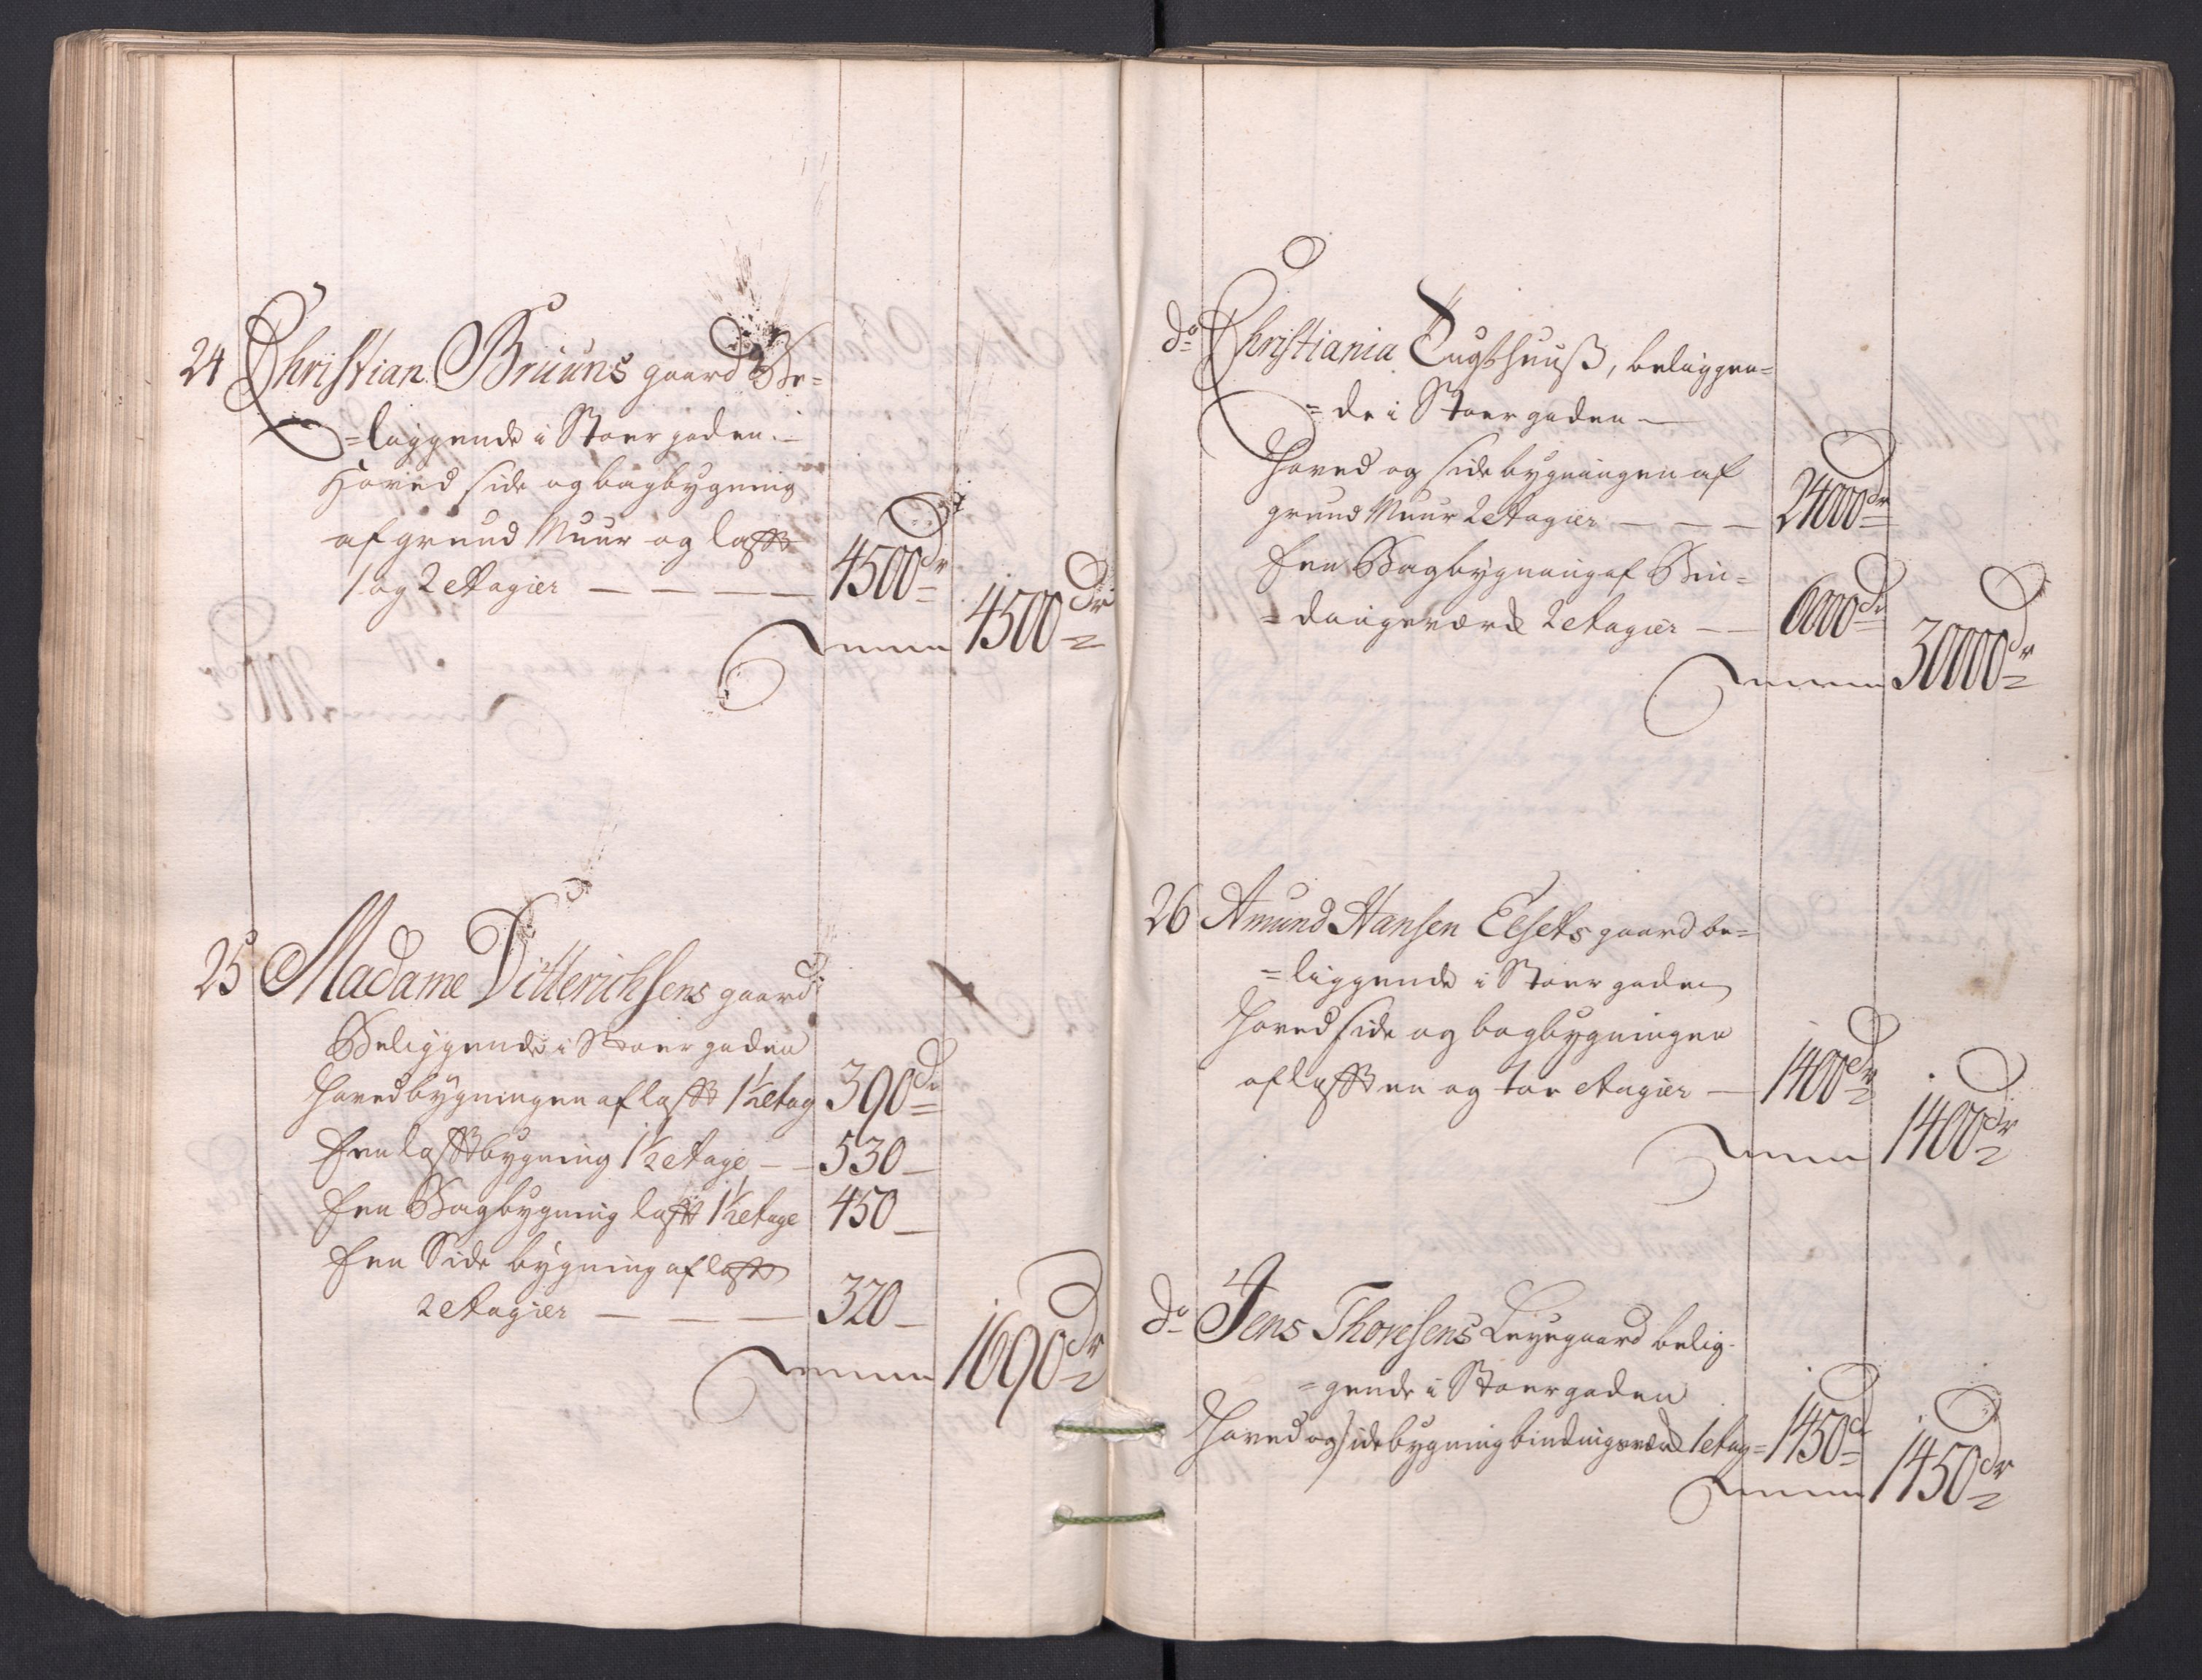 24 Christian Bruuns gaard Be=
=liggende i Stoer gaden.
Hoved side og bagbygning
af grund Muur og laft
1 og 2 Etagier — — — — 4500 dr
Summa 4500 dr
25 Madame Ditterichsens gaard
Beliggende i Stoer gaden
Hovedbygningen af laft 1½ Etag 390 dr
Een laftbygning 1½ Etage — — 530 —
Een Bagbygning laft 1½ Etage 450 —
Een Side bygning af laft
2 Etagier — — — 320 —
Summa 1690 dr
do Christiania Tugthuuß, beliggen=
=de i Stoer gaden —
Hoved og side bygningen af
grund Muur 2 Etagier — — — 24000 dr
Een Bagbygning af Bin=
=dingsværk 2 Etagier — — 6000 dr
Summa 30000 dr
26 Amund Hansen Elsets gaard be=
=liggende i Stoer gaden
Hoved side og bagbygningen
af laft en og toe Etagier — 1400 dr
Summa 1400 dr
do Jens Thoresens Leyegaard belig-
=gende i Stoergaden
Hoved og side bygning bindingsværk 1 Etag= 1450 dr
Summa 1450 dr